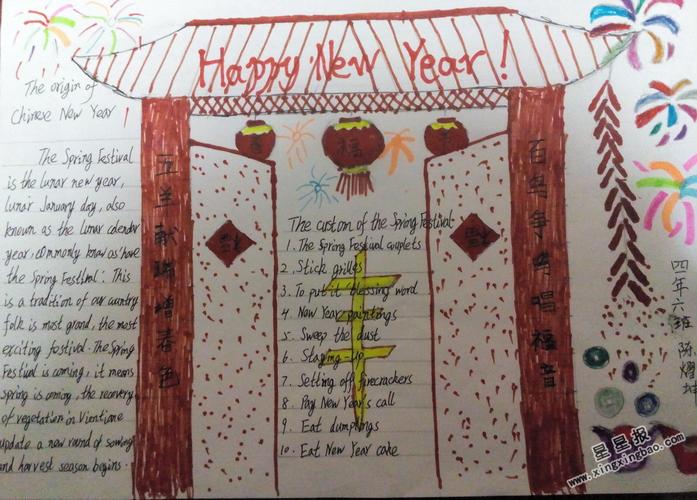 Happy New Year!
The origin of
Chinese New Year!
The Spring Festival
is the lunar new year,
lunar January day, also
known as the lunar calendar
year, commonly know as "have
the Spring Festival". This
is a tradition of our country
folk is most grand, the most
exciting festival. The Spring
Festival is coming, it means
spring is coming, the recovery
of vegetation in Vientiane
update a new round of sowing
and harvest season begins.
玉兰献瑞增春色
福
The custom of the Spring Festival
1. The Spring Festival couplets
2. Stick grilles
3. To put it "blessing word
4. New Year paintings
5. Sweep the dust
6. Staying-up
7. Setting off firecrackers
8. Pay New Year's call
9. Eat dumplings
10. Eat New Year cake
百鸟争鸣唱福音
四年六班 陈熠坤
星星报
www.xingxingbao.com